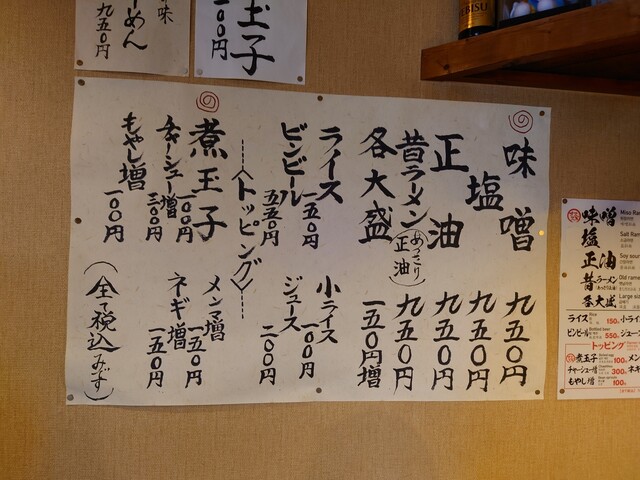 味噌 九五〇円
塩 九五〇円
正油 九五〇円
昔ラーメン(あっさり正油) 九五〇円
各大盛 一五〇円増
ライス 一五〇円
小ライス 一〇〇円
ビンビール 五五〇円
ジュース 二〇〇円
〈トッピング〉
煮玉子 一〇〇円
メンマ増 一五〇円
チャーシュー増 三〇〇円
ネギ増 一五〇円
もやし増 一〇〇円
(全て税込みです)
玉子
一〇〇円
の味
ーめん
九五〇円
EBISU
味噌 Miso Ra
塩 Salt Ram
正油 Soy sour
昔ラーメン Old rame
各大盛 Large si
ライス Rice 150 小ライ
ビンビール Bottled beer 550 ジュー
トッピング
煮玉子 100 メン
チャーシュー増 300 ネギ
もやし増 100